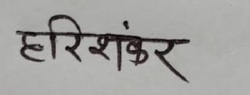 हरिशंकर